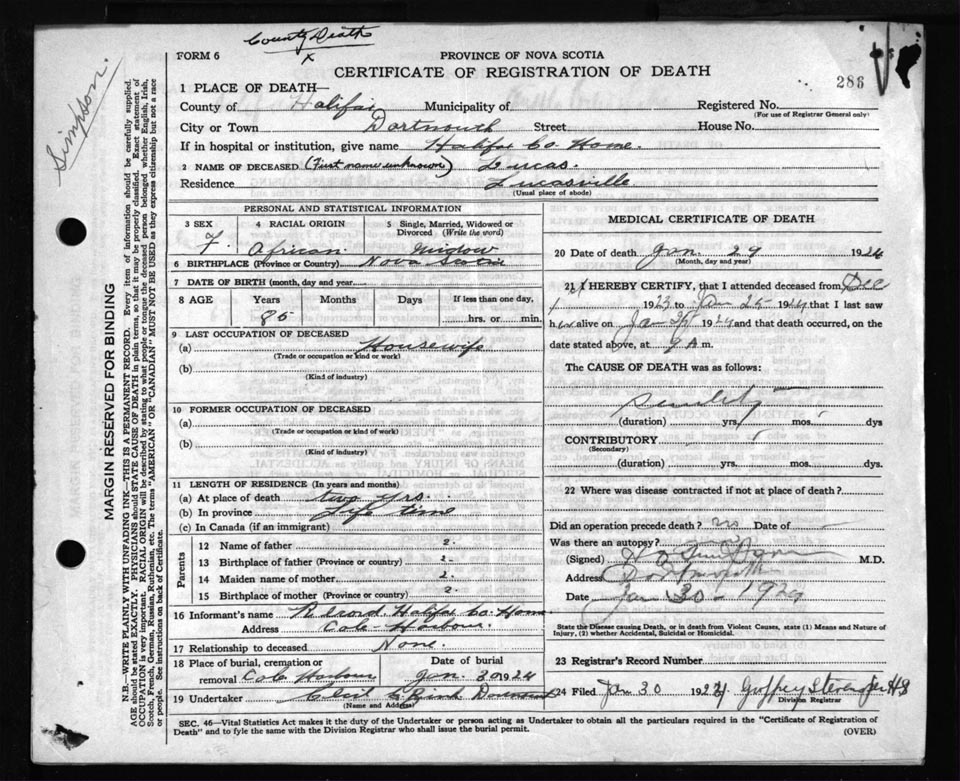 County Death
x
FORM 6
PROVINCE OF NOVA SCOTIA
CERTIFICATE OF REGISTRATION OF DEATH
286
Simpson.
MARGIN RESERVED FOR BINDING
N.B.—WRITE PLAINLY WITH UNFADING INK—THIS IS A PERMANENT RECORD. Every item of information should be carefully supplied.
AGE should be stated EXACTLY. PHYSICIANS should STATE CAUSE OF DEATH in plain terms, so that it may be properly classified. Exact statement of
OCCUPATION is very important. RACIAL ORIGIN will be described by stating to what people or tongue the deceased person belonged whether English, Irish,
Scotch, French, German, Russian, Ruthenian, etc. The terms "AMERICAN" OR "CANADIAN" MUST NOT BE USED as they express citizenship but not a race
or people. See instructions on back of Certificate.
1 PLACE OF DEATH—
County of Halifax Municipality of Registered No.
(For use of Registrar General only)
City or Town Dartmouth Street House No.
If in hospital or institution, give name Halifax Co. Home.
2 NAME OF DECEASED (First name unknown) Lucas.
Residence Lucasville
(Usual place of abode)
PERSONAL AND STATISTICAL INFORMATION
3 SEX 4 RACIAL ORIGIN 5 Single, Married, Widowed or
Divorced (Write the word)
F. African Widow
6 BIRTHPLACE (Province or Country) Nova Scotia
7 DATE OF BIRTH (month, day and year)
8 AGE Years Months Days If less than one day,
85 hrs. or min.
9 LAST OCCUPATION OF DECEASED
(a) Housewife
(Trade or occupation or kind or work)
(b)
(Kind of industry)
10 FORMER OCCUPATION OF DECEASED
(a)
(Trade or occupation or kind of work)
(b)
(Kind of industry)
11 LENGTH OF RESIDENCE (In years and months)
(a) At place of death two yrs.
(b) In province Life time
(c) In Canada (if an immigrant)
Parents
12 Name of father ?
13 Birthplace of father (Province or country) ?
14 Maiden name of mother ?
15 Birthplace of mother (Province or country) ?
16 Informant's name Record Halifax Co. Home
Address Cole Harbour.
17 Relationship to deceased None.
18 Place of burial, cremation or Date of burial
removal Cole Harbour Jan. 30 1924
19 Undertaker
(Name and Address)
MEDICAL CERTIFICATE OF DEATH
20 Date of death Jan 29 1924
(Month, day and year)
21 I HEREBY CERTIFY, that I attended deceased from Dec
1 1923 to Jan 25 1924 that I last saw
her alive on Jan 25 1924 and that death occurred, on the
date stated above, at 9 A m.
The CAUSE OF DEATH was as follows:
Senility
(duration) yrs. mos. dys
CONTRIBUTORY
(Secondary)
(duration) yrs. mos. dys.
22 Where was disease contracted if not at place of death?
Did an operation precede death? no Date of
Was there an autopsy?
(Signed) M.D.
Address Dartmouth
Date Jan 30 - 1924
State the Disease causing Death, or in death from Violent Causes, state (1) Means and Nature of
Injury, (2) whether Accidental, Suicidal or Homicidal.
23 Registrar's Record Number
24 Filed Jan 30 1924
Division Registrar
SEC. 46—Vital Statistics Act makes it the duty of the Undertaker or person acting as Undertaker to obtain all the particulars required in the "Certificate of Registration of
Death" and to fyle the same with the Division Registrar who shall issue the burial permit.
(OVER)